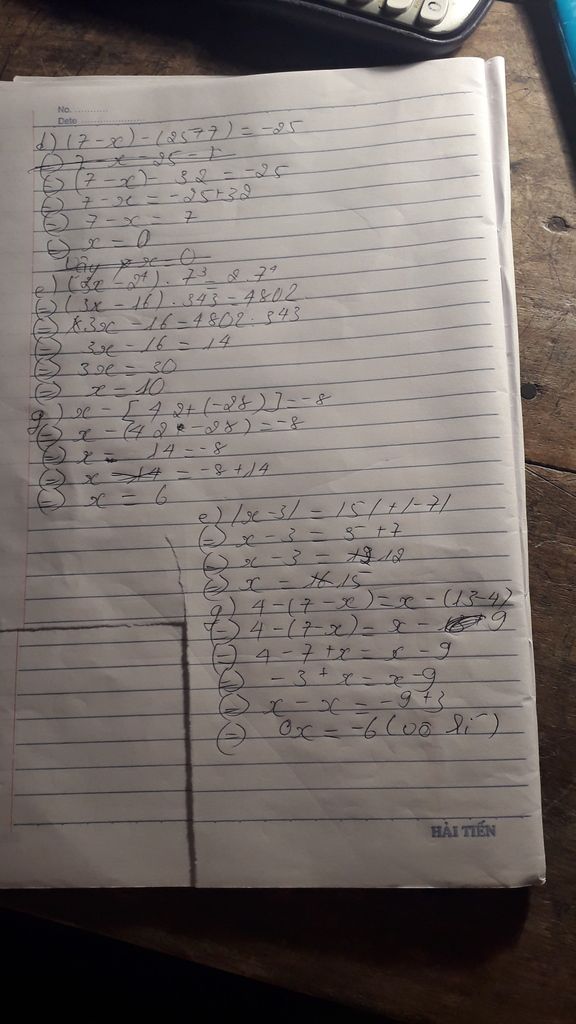 No.
Date
d) (7-x)-(25+7) = -25
⇔ 7-x-25-7
⇔ (7-x) 32 = -25
⇔ 7-x = -25+32
⇔ 7-x = 7
⇔ x = 0
Vậy x = 0
e) (3x-2⁴).7³ = 2.7⁴
⇔ (3x-16).343 = 4802
⇔ 3x-16 = 4802:343
⇔ 3x-16 = 14
⇔ 3x = 30
⇔ x = 10
g) x-[42+(-28)] = -8
⇔ x-(42-28) = -8
⇔ x - 14 = -8
⇔ x = -8+14
⇔ x = 6
e) |x-3| = |5|+|-7|
⇔ x-3 = 5+7
⇔ x-3 = 12
⇔ x = 15
g) 4-(7-x) = x-(13-4)
⇔ 4-(7-x) = x-9
⇔ 4-7+x = x-9
⇔ -3+x = x-9
⇔ x-x = -9+3
⇔ 0x = -6 (vô lí)
HẢI TIẾN